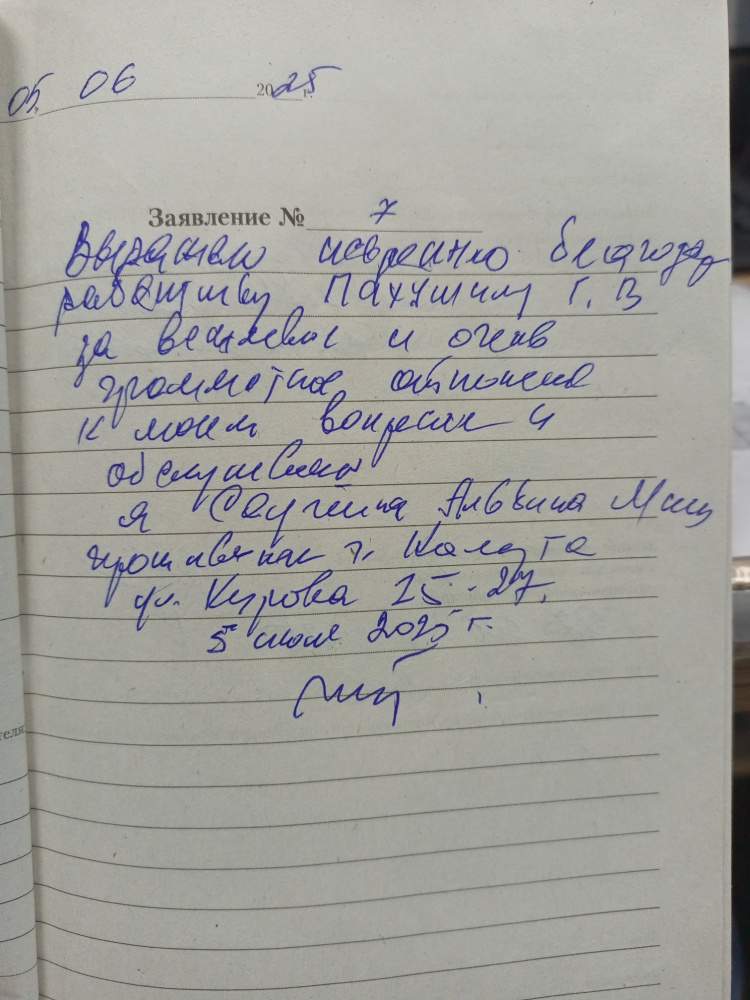 05. 06 2025 г.
Заявление № 7
Выражаю искренню благодар
работнику Пахушину Г. В
за вежлевое и очень
граммотное отношение
к моим вопросам и
обслуживан
я Альбина Мих
проживаю г. Калуга
ул. Кирова 15-27.
5 июня 2025 г.
теля